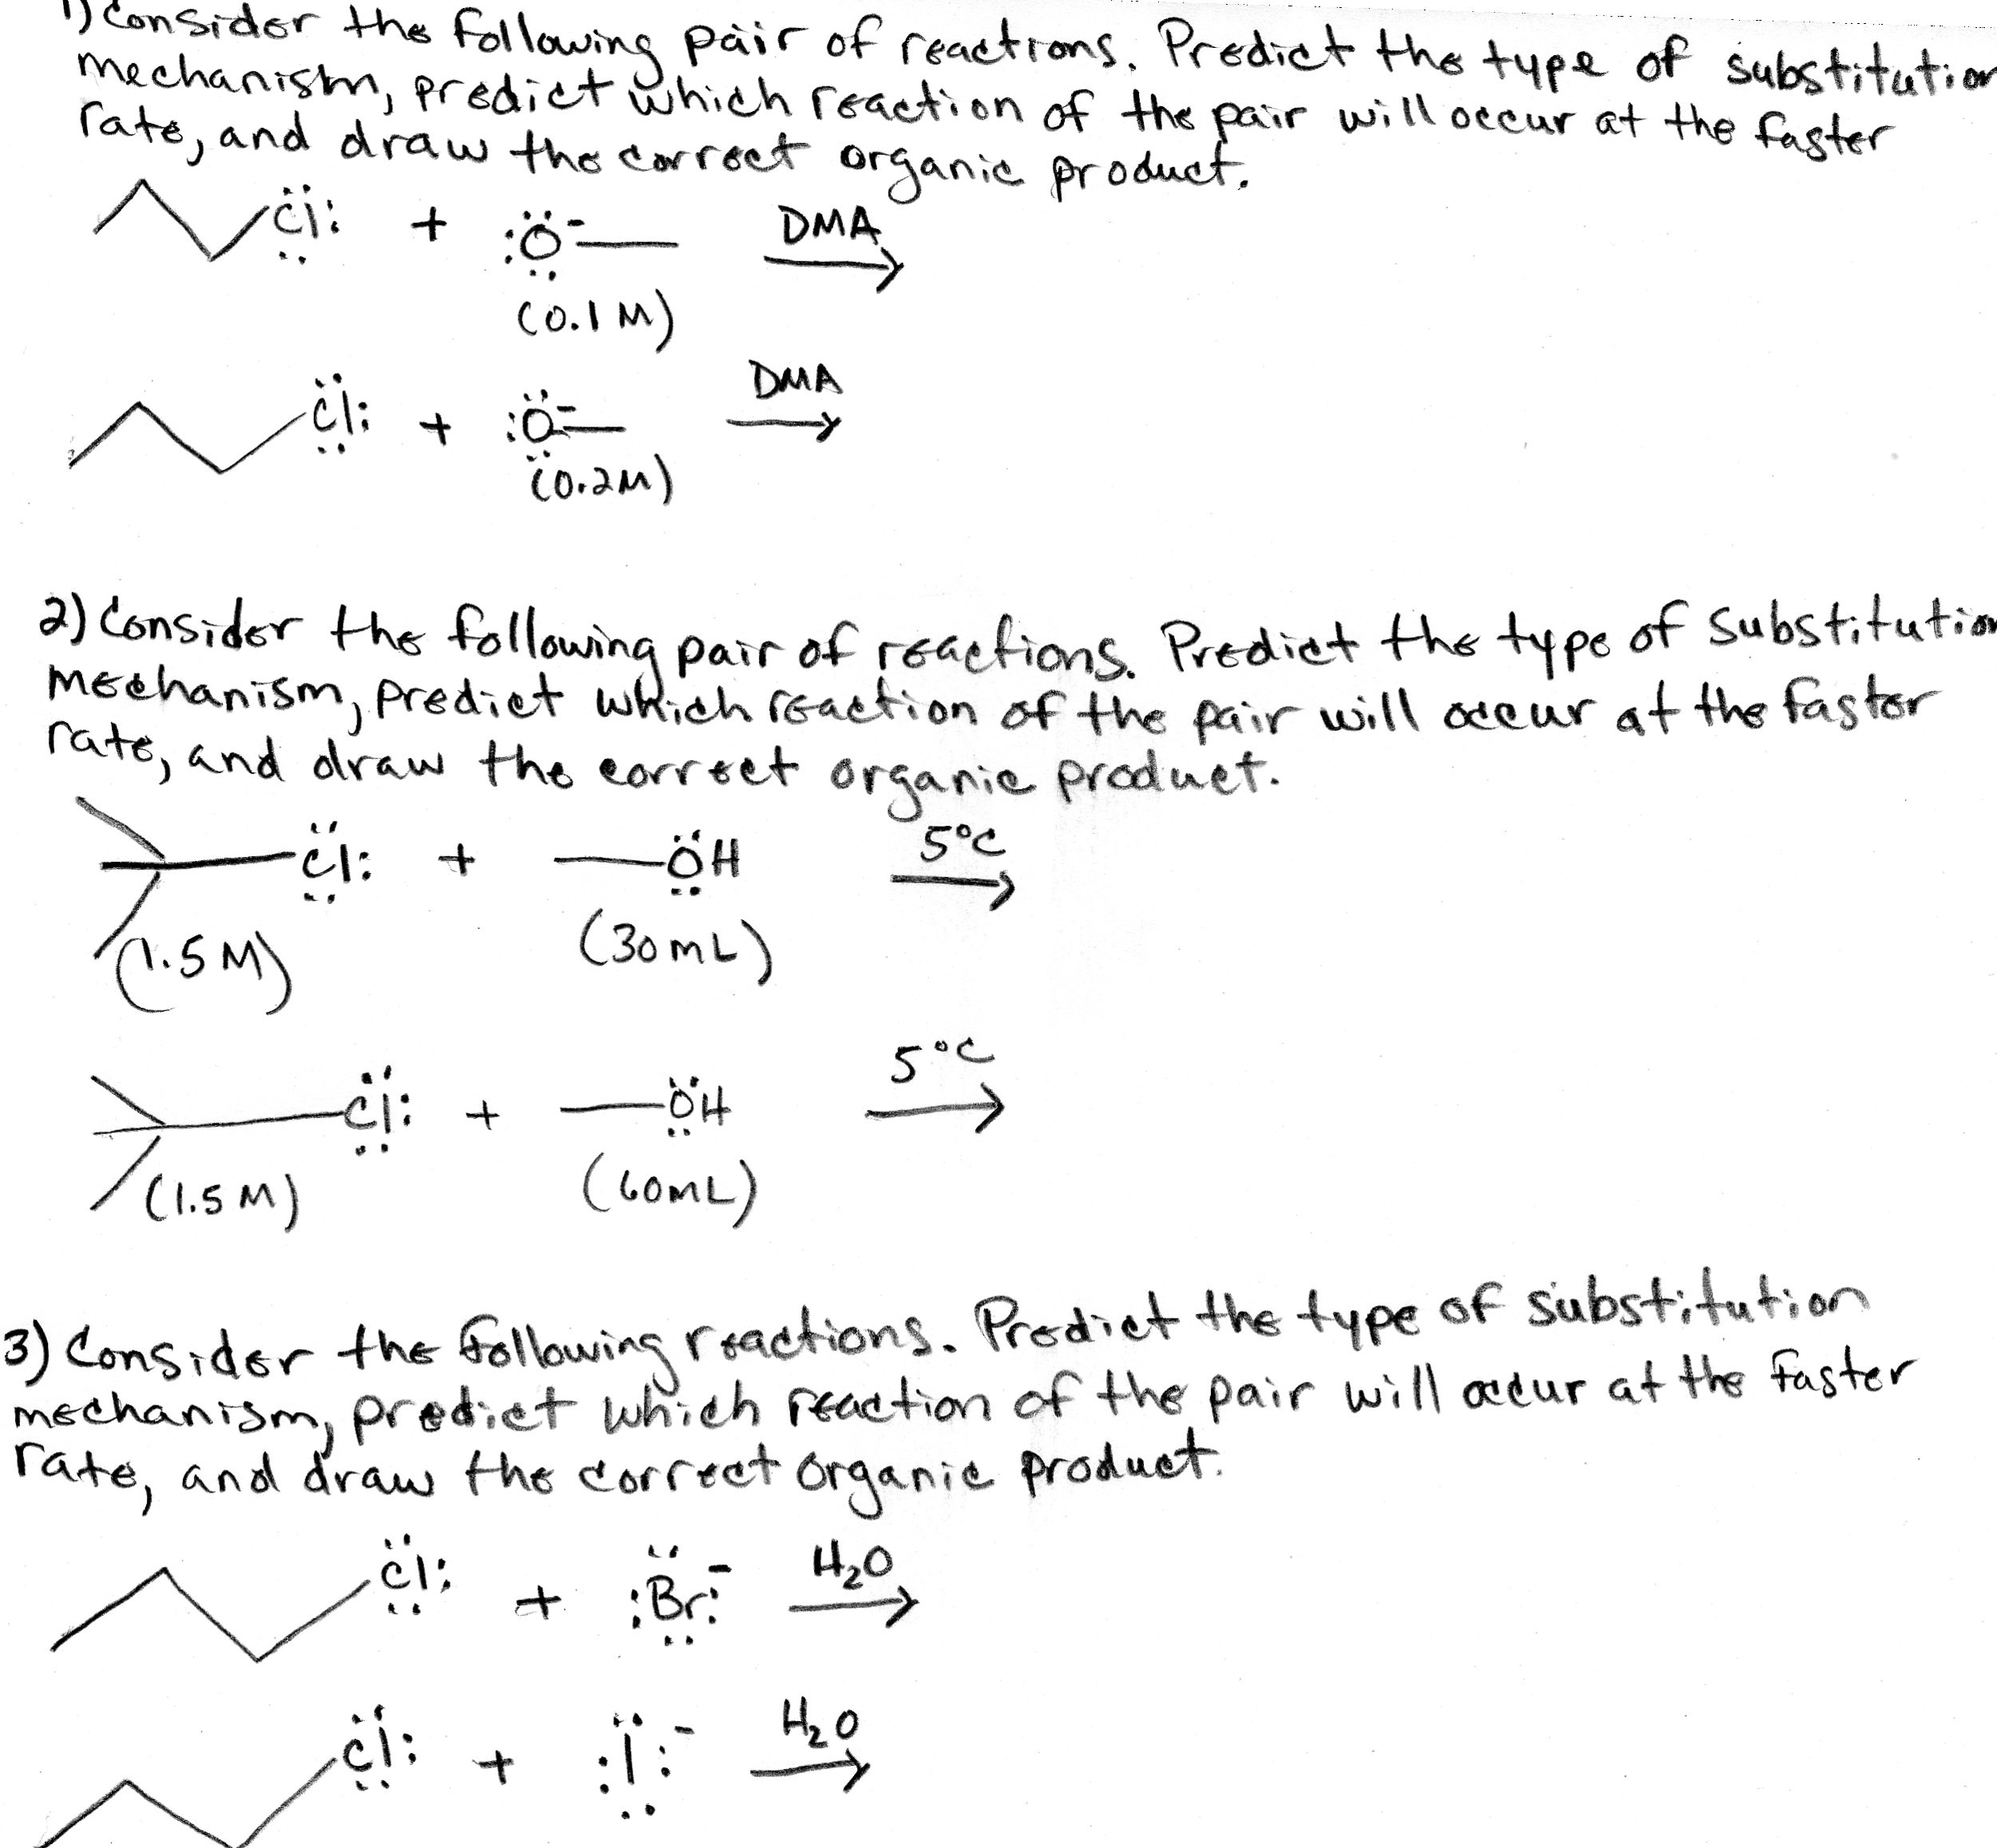 1) Consider the following pair of reactions. Predict the type of substitution
mechanism, predict which reaction of the pair will occur at the faster
rate, and draw the correct organic product.
Cl: + :O- DMA
(0.1 M)
Cl: + :O- DMA
(0.2M)
2) Consider the following pair of reactions. Predict the type of substitution
mechanism, predict which reaction of the pair will occur at the faster
rate, and draw the correct organic product.
Cl: + OH 5°C
(1.5 M) (30 mL)
Cl: + OH 5°C
(1.5 M) (60mL)
3) Consider the following reactions. Predict the type of substitution
mechanism, predict which reaction of the pair will occur at the faster
rate, and draw the correct organic product.
Cl: + :Br:- H₂O
Cl: + :I:- H₂O